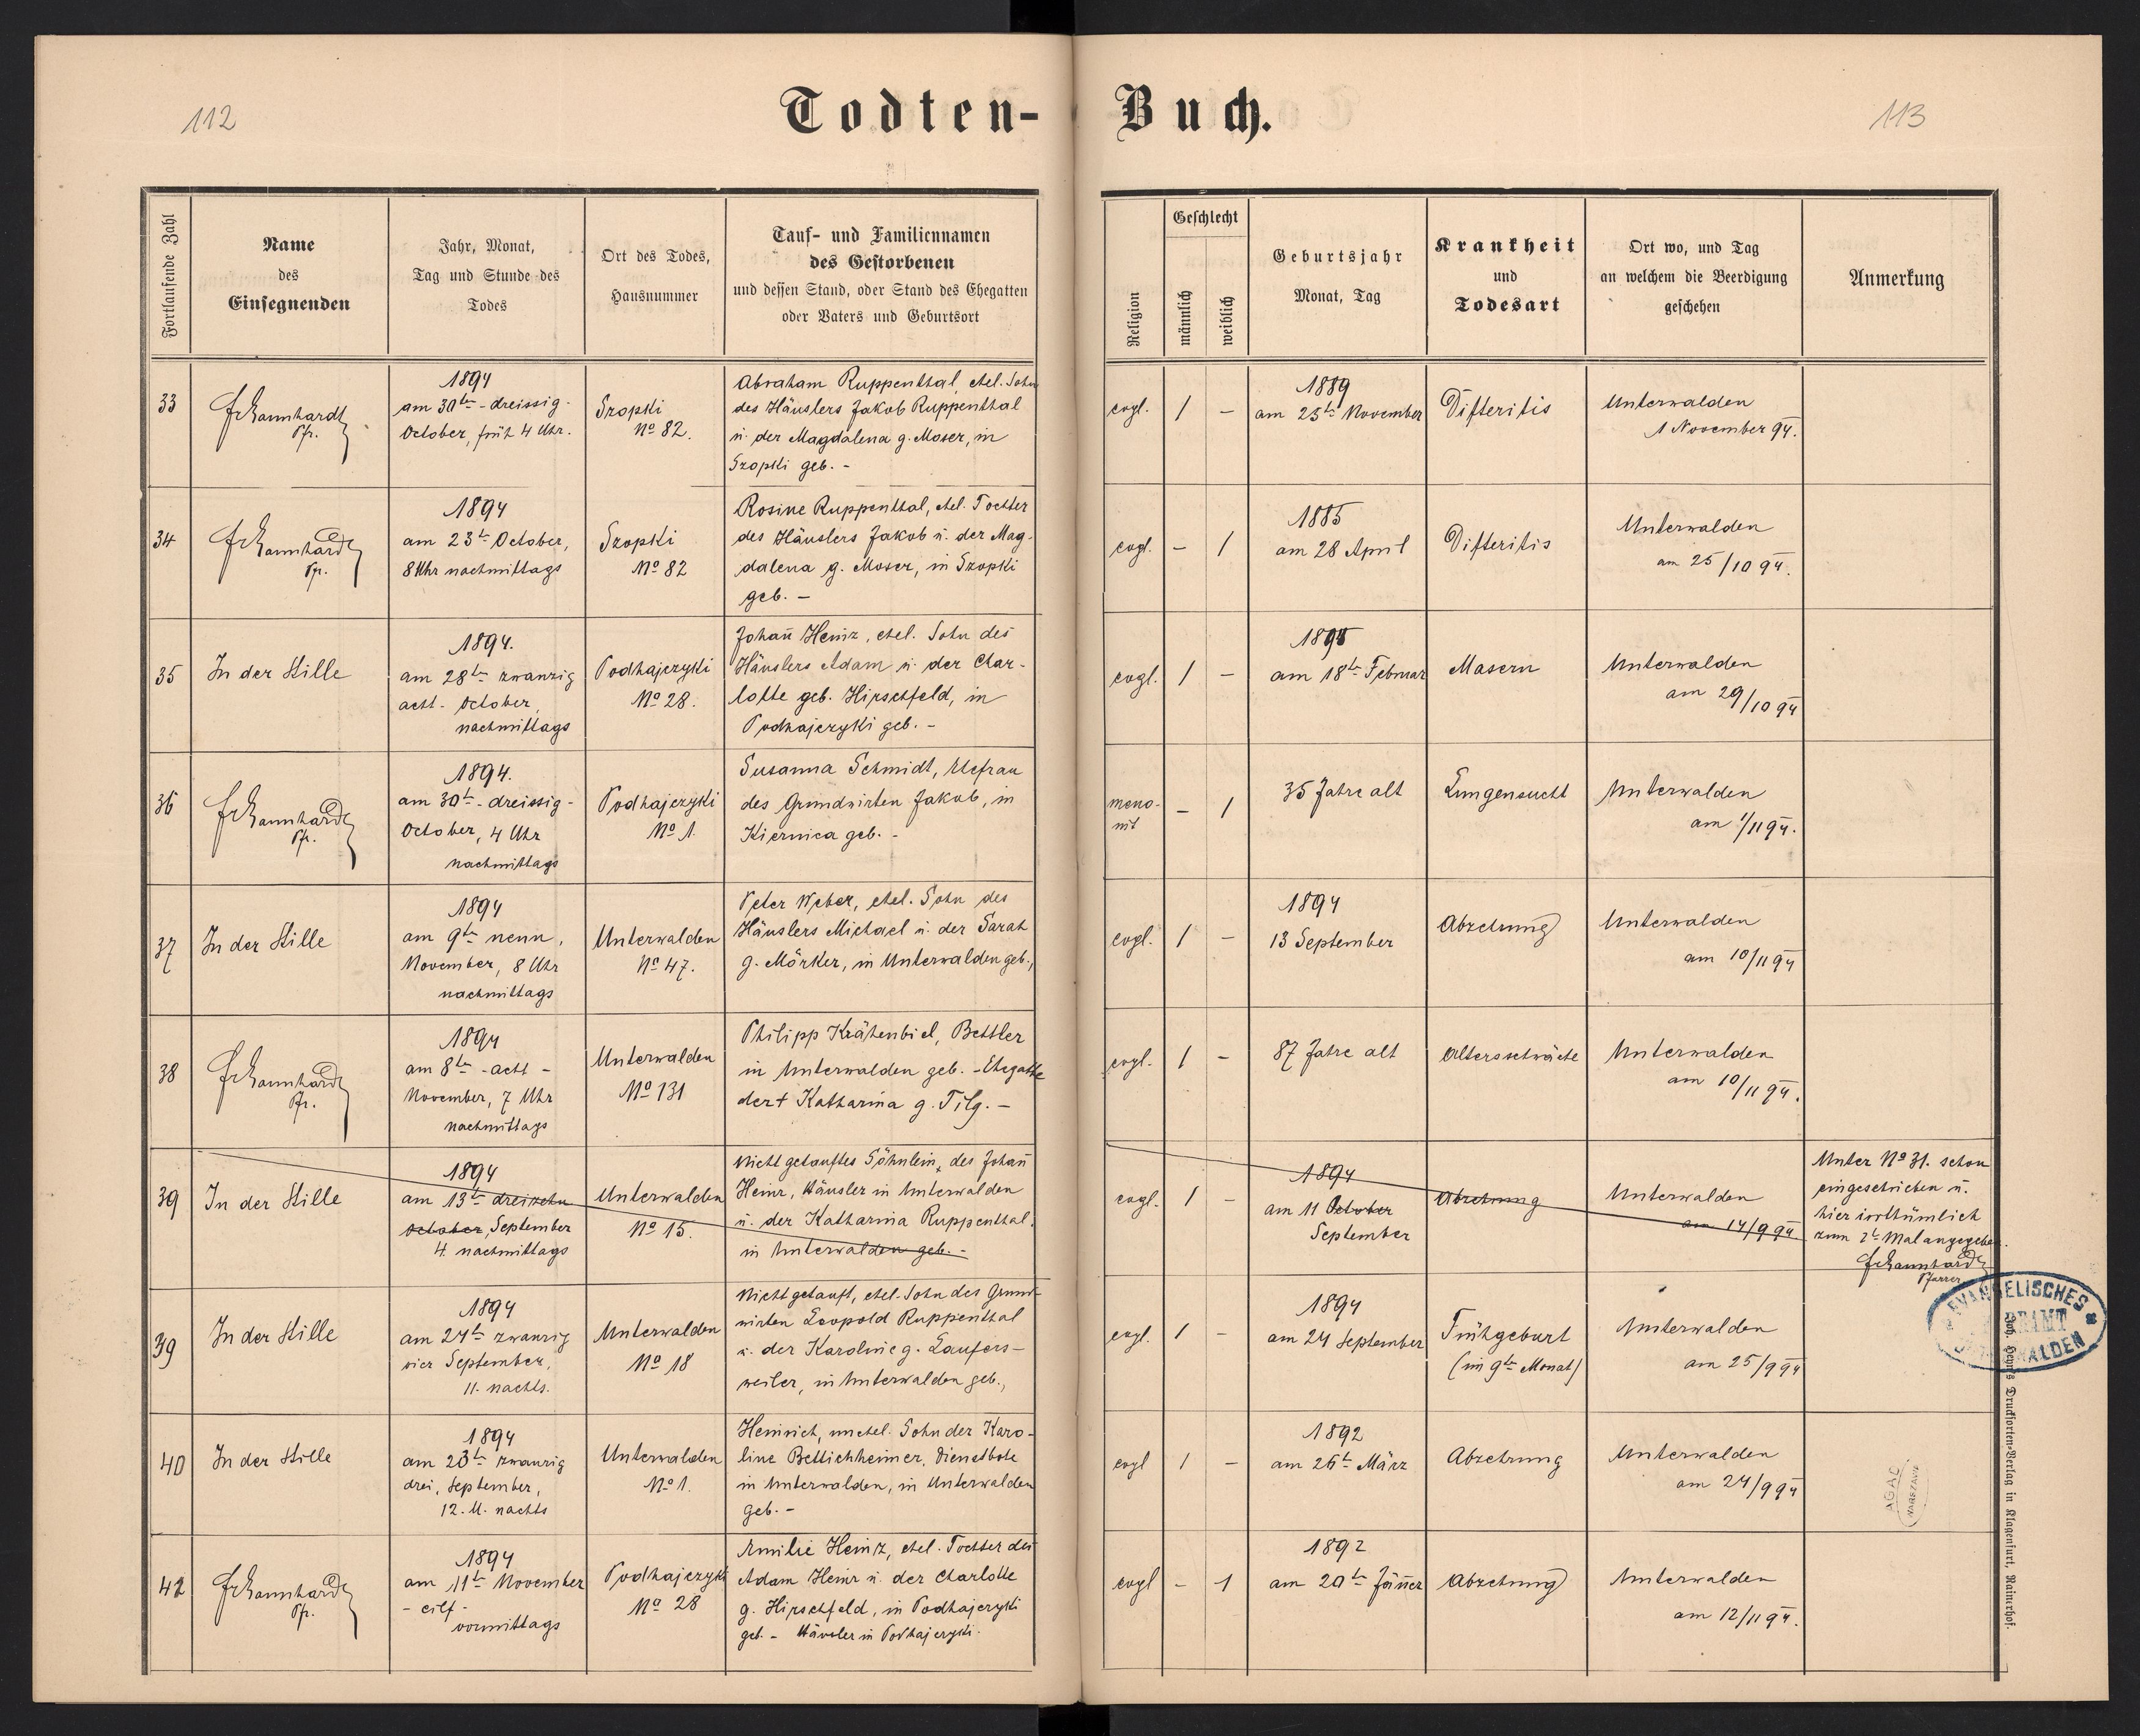 112
Todten-
Buch.
113
Fortlaufende Zahl
Name
des
Einsegnenden
Jahr, Monat,
Tag und Stunde des
Todes
Ort des Todes,
Hausnummer
Tauf- und Familiennamen
des Gestorbenen
und dessen Stand, oder Stand des Ehegatten
oder Vaters und Geburtsort
Religion
Geschlecht
männlich
weiblich
Geburtsjahr
Monat, Tag
Krankheit
und
Todesart
Ort wo, und Tag
an welchem die Beerdigung
geschehen
Anmerkung
33
Pfr.
1894
am 30ten - dreissig -
October, früh 4 Uhr.
Szopki
No 82.
Abraham Ruppenthal, ehel. Sohn
des Häuslers Jakob Ruppenthal
u. der Magdalena g. Moser, in
Szopki geb. -
evgl.
1
-
1889
am 25te November
Difteritis
Unterwalden
1 November 94.
34
Pfr.
1894
am 23te October,
8 Uhr nachmittags
Szopki
No 82
Rosine Ruppenthal, ehel. Tochter
des Häuslers Jakob u. der Mag-
dalena g. Moser, in Szopki
geb. -
evgl.
-
1
1885
am 28 April
Difteritis
Unterwalden
am 25/10 94.
35
In der Stille
1894.
am 28te zwanzig
acht - October,
nachmittags
Podhajczyki
No 28.
Johañ Heinz, ehel. Sohn des
Häuslers Adam u. der Char-
lotte geb. Hirschfeld, in
Podhajczyki geb. -
evgl.
1
-
am 18te Februar
Masern
Unterwalden
am 29/10 94
36
Pfr.
1894.
am 30te - dreissig -
October, 4 Uhr
nachmittags
Podhajczyki
No 1.
Susanna Schmidt, Ehefrau
des Grundwirten Jakob, in
Kiernica geb. -
meno-
nit
-
1
35 Jahre alt
Lungensucht
Unterwalden
am 1/11 94.
37
In der Stille
1894
am 9te neun,
November, 8 Uhr
nachmittags
Unterwalden
No 47.
Peter Weber, ehel. Sohn des
Häuslers Michael u. der Sarah
g. Mörker, in Unterwalden geb.,
evgl.
1
-
1894
13 September
Abzehrung
Unterwalden
am 10/11 94
38
Pfr.
1894
am 8te - acht -
November, 7 Uhr
nachmittags
Unterwalden
No 131
Philipp Krähenbiel, Bettler
in Unterwalden geb. - Ehegatte
der † Katharina g. Tilg. -
evgl.
1
-
87 Jahre alt
Altersschwäche
Unterwalden
am 10/11 94.
39
In der Stille
1894
am 13te dreizehn
October, September
4. nachmittags
Unterwalden
No 15.
Nicht getauftes Söhnlein, des Johañ
Heinz, Häusler in Unterwalden
u. der Katharina Ruppenthal,
in Unterwalden geb. -
evgl.
1
-
1894
am 11 October
September
Abzehrung
Unterwalden
am 14/9 94
Unter No 31. schon
eingeschrieben u.
hier irrthümlich
zum 2te Mal angegeben.
Pfarrer
39
In der Stille
1894
am 24te zwanzig
vier September,
11. nachts.
Unterwalden
No 18
Nicht getauft, ehel. Sohn des Grund-
wirten Leopold Ruppenthal
u. der Karoline g. Laufers-
weiler, in Unterwalden geb.,
evgl.
1
-
1894
am 24 September
Frühgeburt
(im 9te Monat)
Unterwalden
am 25/9 94
EVANGELISCHES
WALDEN
40
In der Stille
1894
am 23te zwanzig
drei, September,
12. U. nachts
Unterwalden
No 1.
Heinrich, unehel. Sohn der Karo-
line Bettichheimer, Dienstbote
in Unterwalden, in Unterwalden
geb. -
evgl
1
-
1892
am 26te März
Abzehrung
Unterwalden
am 24/9 94
AGAD
WARSZAWA
42
Pfr.
1894
am 11te November
- eilf -
vormittags
Podhajczyki
No 28
Emilie Heinz, ehel. Tochter des
Adam Heinz u. der Charlotte
g. Hirschfeld, in Podhajczyki
geb. - Häusler in Podhajczyki.
evgl
-
1
1892
am 20te Jäñer
Abzehrung
Unterwalden
am 12/11 94.
Joh. Heyn's Drucksorten-Verlag in Klagenfurt, Rainerhof.